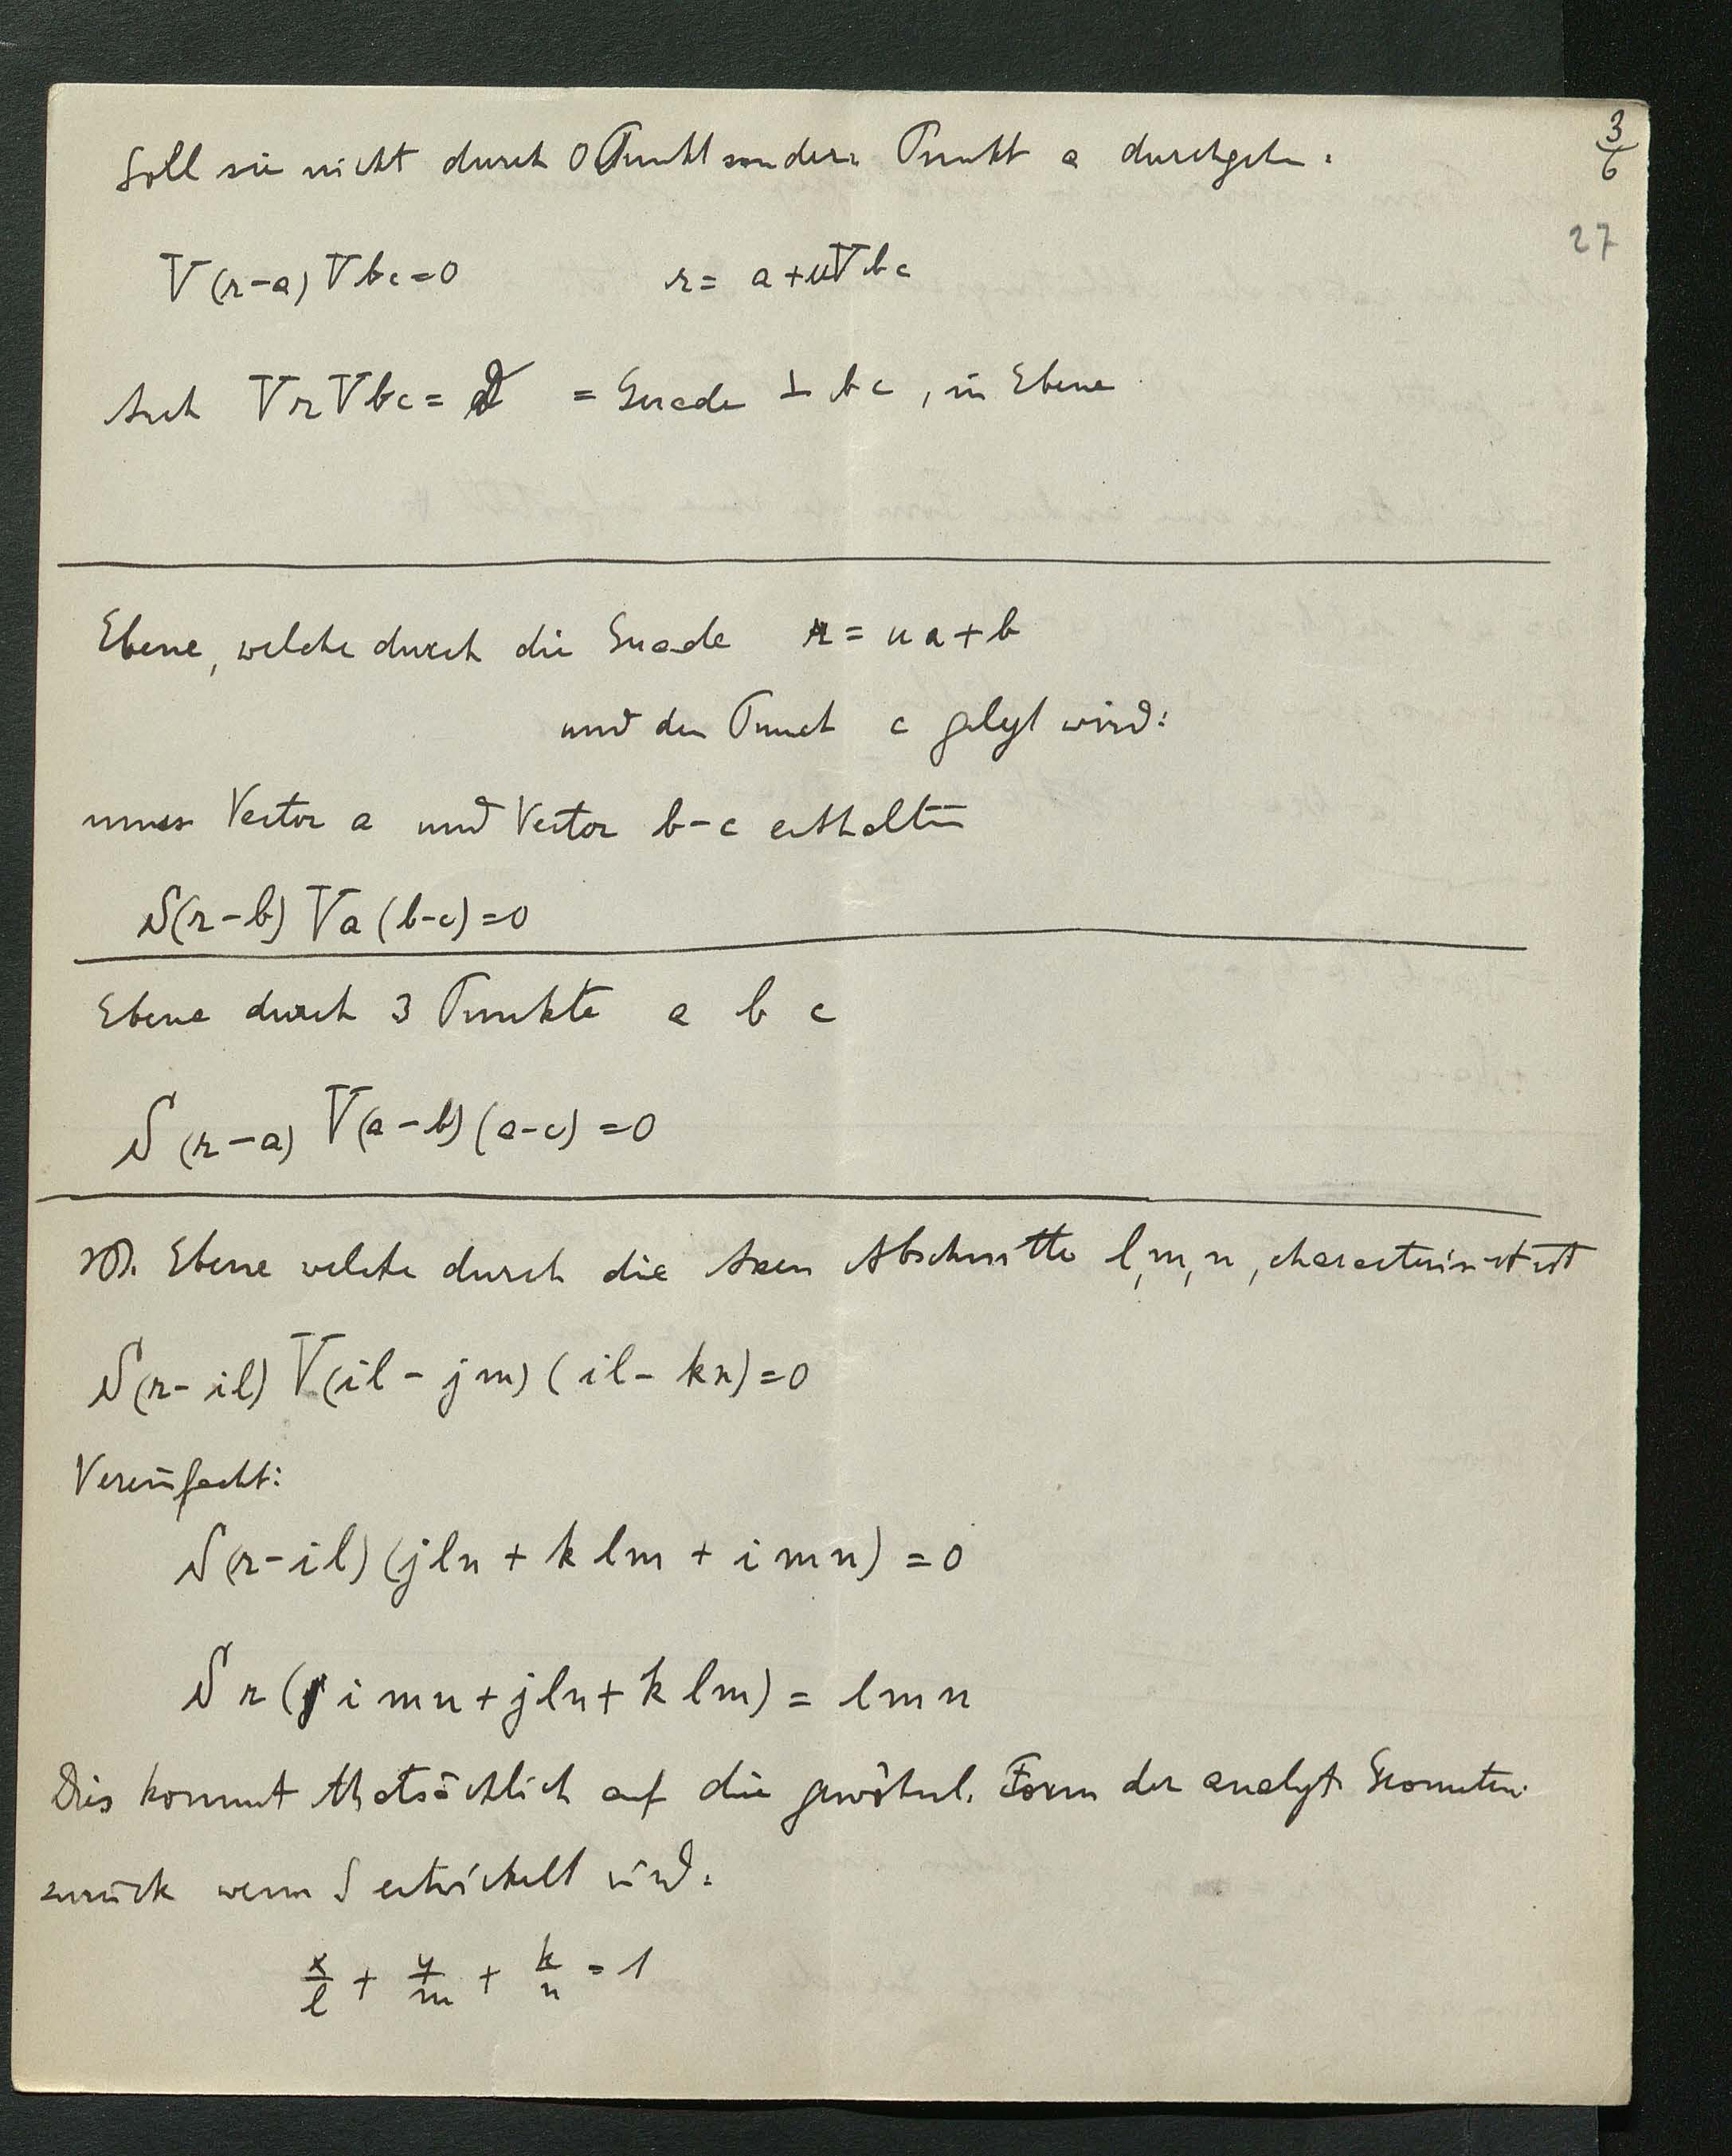 3/6
27
Soll sie nicht durch 0 Punkt sondern Punkt a durchgehn:
V(r-a) Vbc=0 r= a+uVbc
Auch VrVbc= = Gerade ⊥ bc, in Ebene
Ebene, welche durch die Gerade r = ua+b
und den Punct c gelegt wird:
muss Vector a und Vector b-c enthalten
S(r-b) Va(b-c)=0
Ebene durch 3 Punkte a b c
S(r-a) V(a-b)(a-c)=0
Ebene welche durch die Axen Abschnitte l, m, n, characterisirt ist
S(r-il) V(il-jm)(il-kn)=0
Vereinfacht:
S(r-il)(jln + klm + imn) = 0
Sr(imn+jln+klm) = lmn
Dies kommt thatsächlich auf die gewöhnl. Form der analyt. Geometrie
zurück wenn S entwickelt wird:
x/l + y/m + k/n = 1